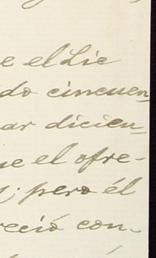 e el Lic
do cincuen
ar dicien
ue el ofre-
; pero él
reció con-